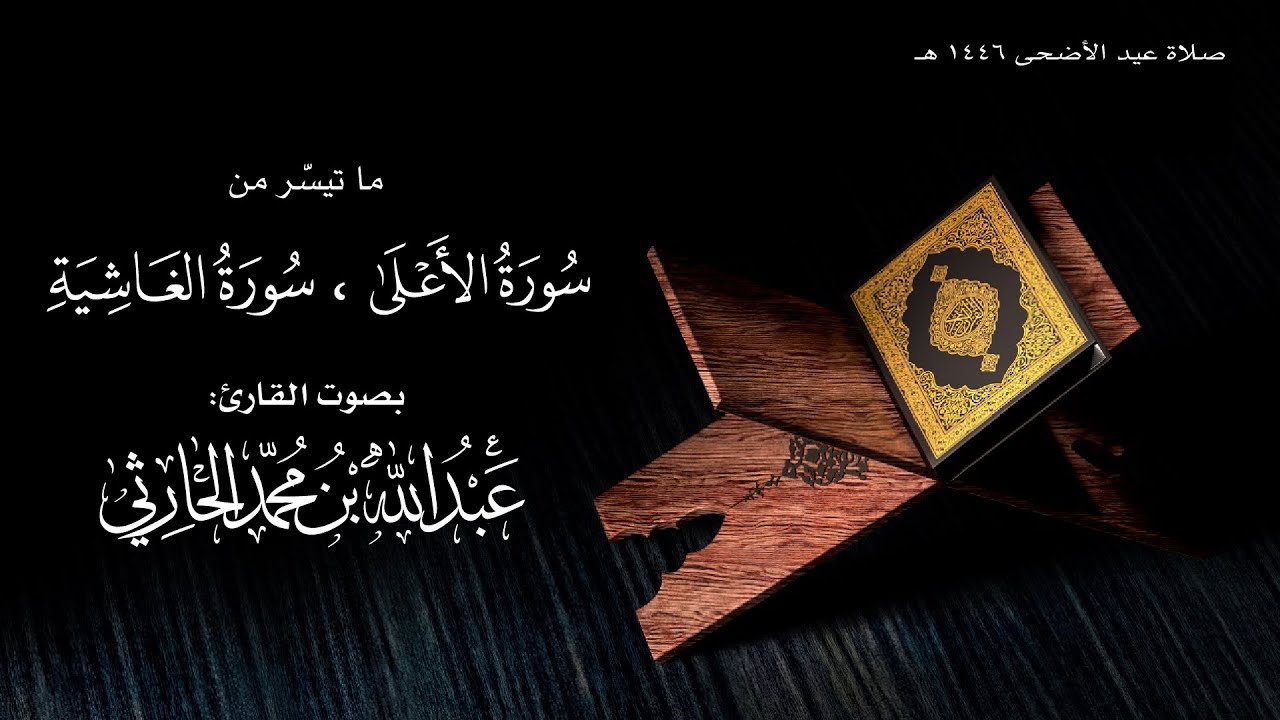 صلاة عيد الأضحى ١٤٤٦ هـ
ما تيسّر من
سُورَةُ الأَعْلَىٰ ، سُورَةُ الغَاشِيَةِ
بصوت القارئ:
عَبْدُ اللَّه بْنُ مُحَمَّد الحَارِثِي